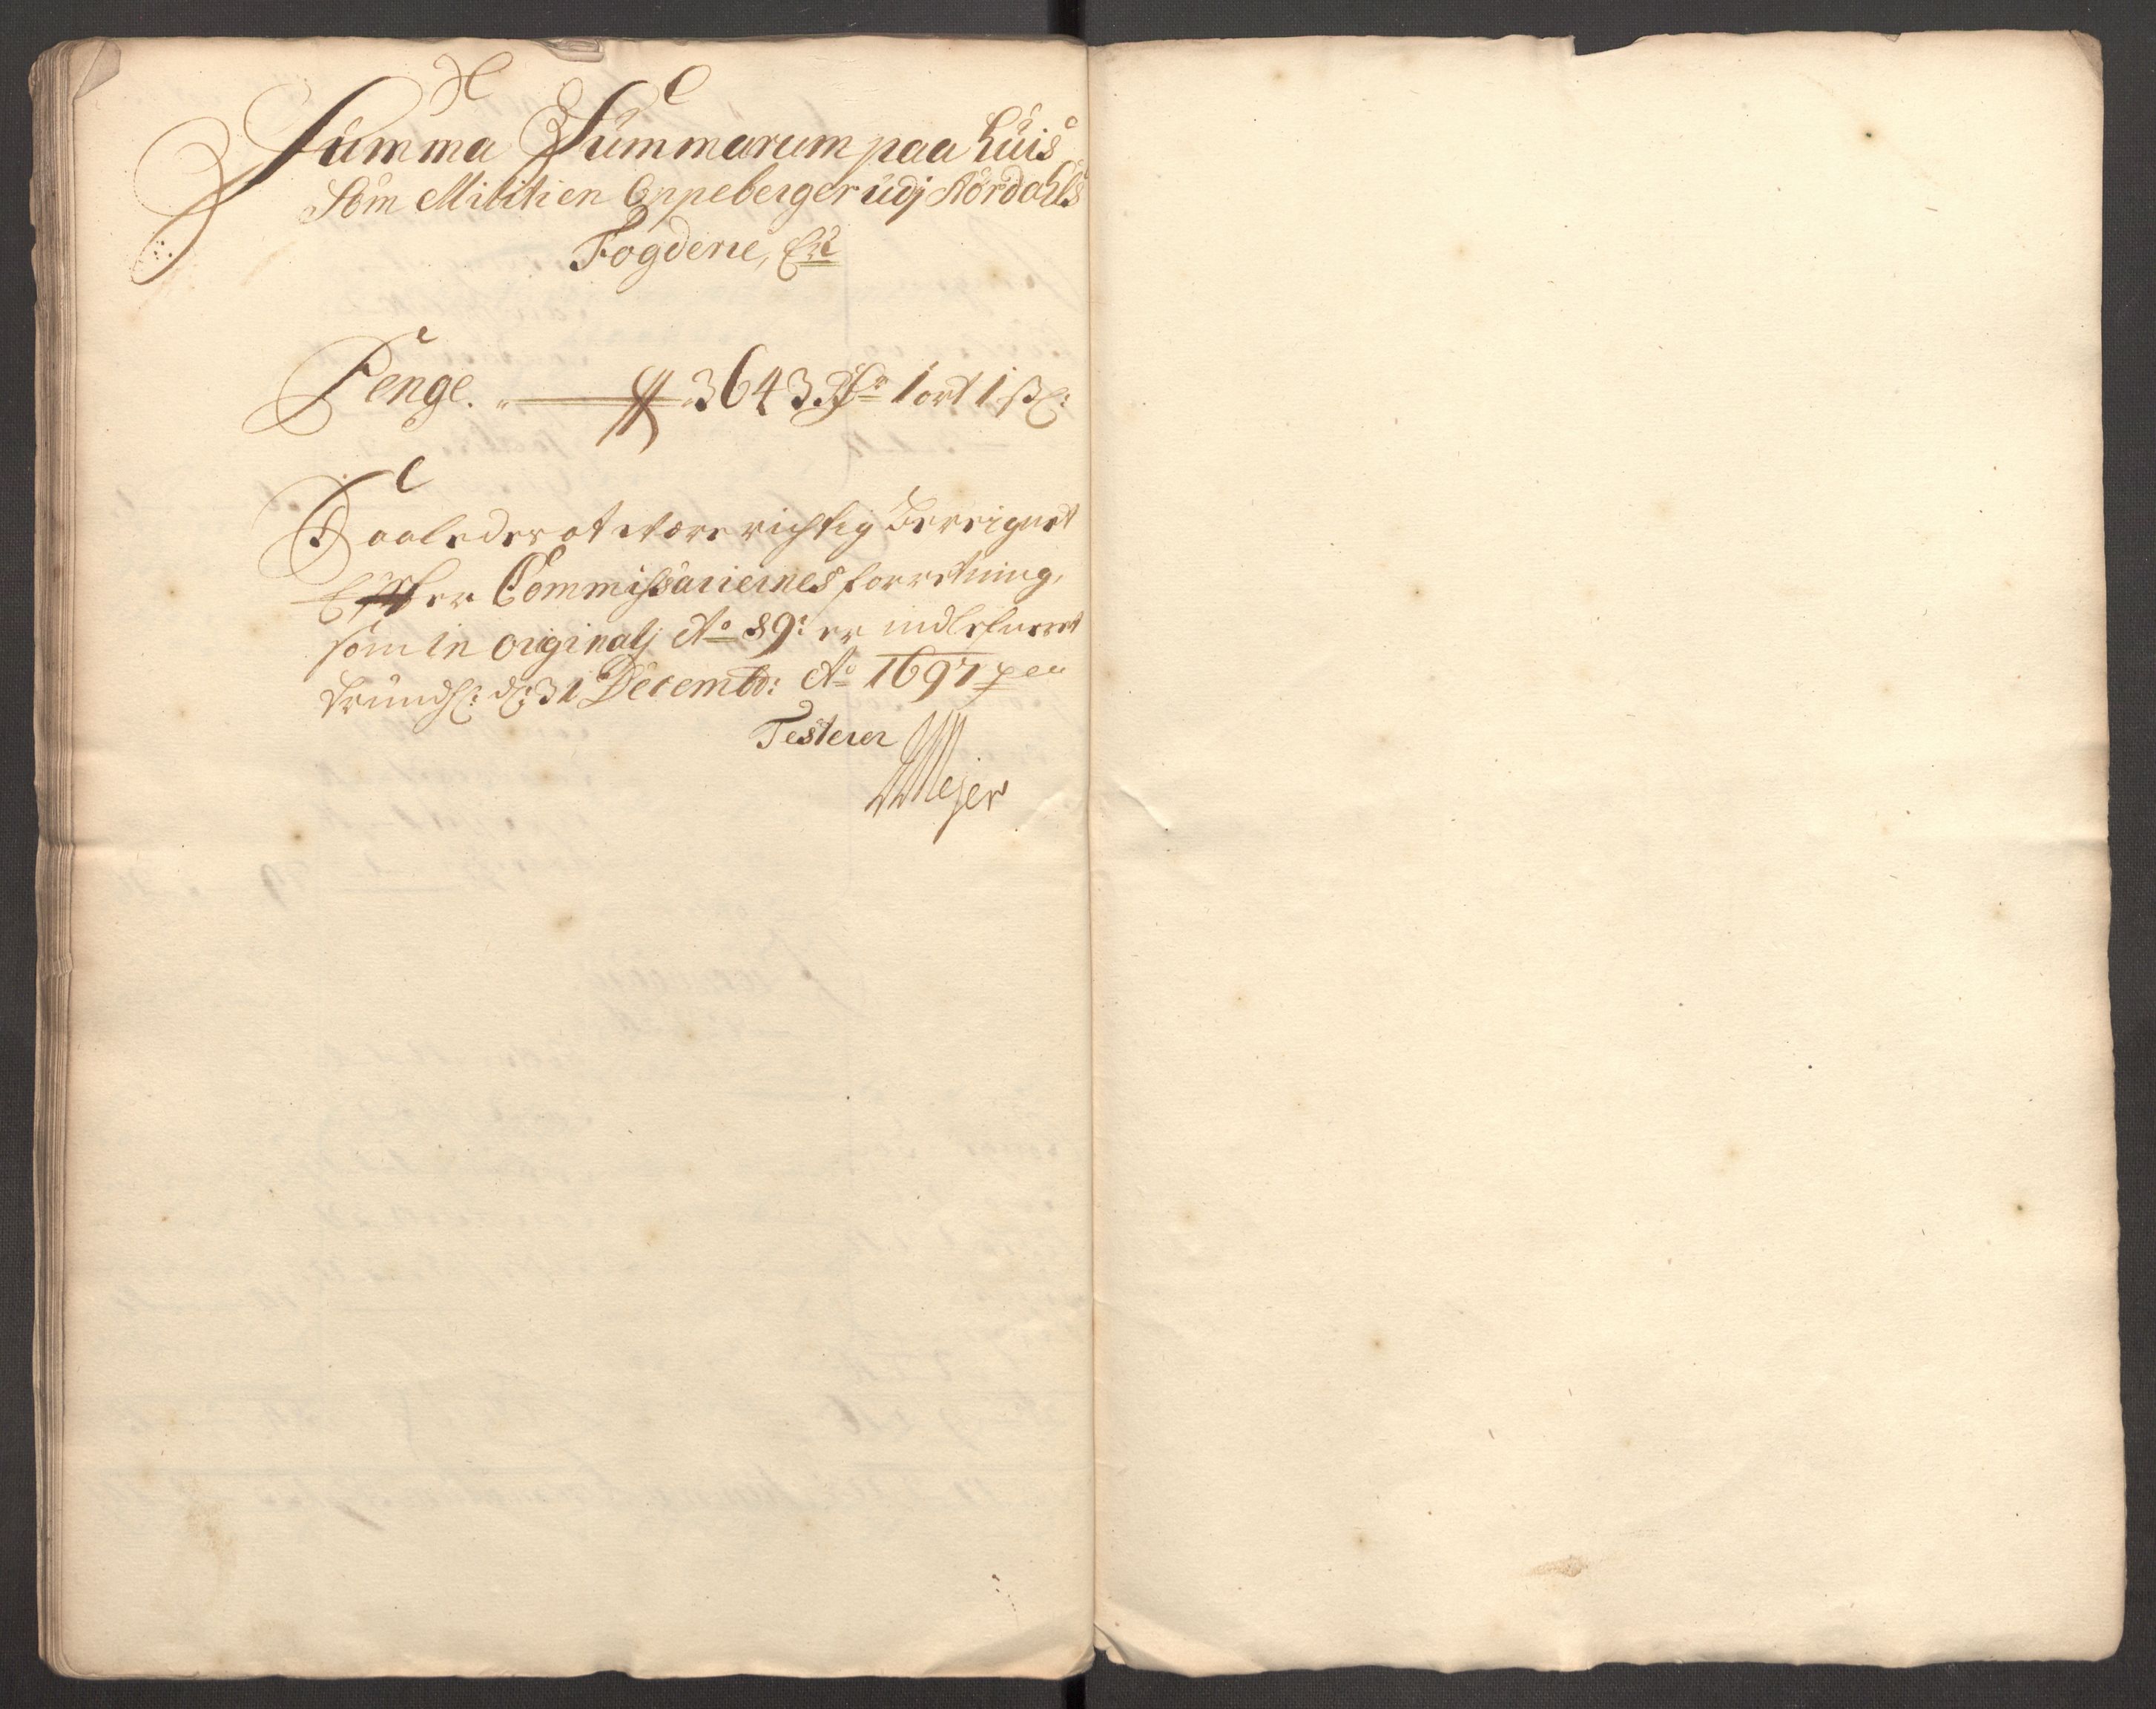 Summa Summarum paa huis
Som Militien Oppeberger udj Nordahls
Fogderie, Er
Penge. 3643 Rdr 1 ort 1 sk:
Saaledes at være richtig Bereignet
Efter Commissariernes forretning,
som in originalj Ao 89: er indlefueret
Trundh: d: 31 Decembr: Ao 1697
Testerer
Mejer